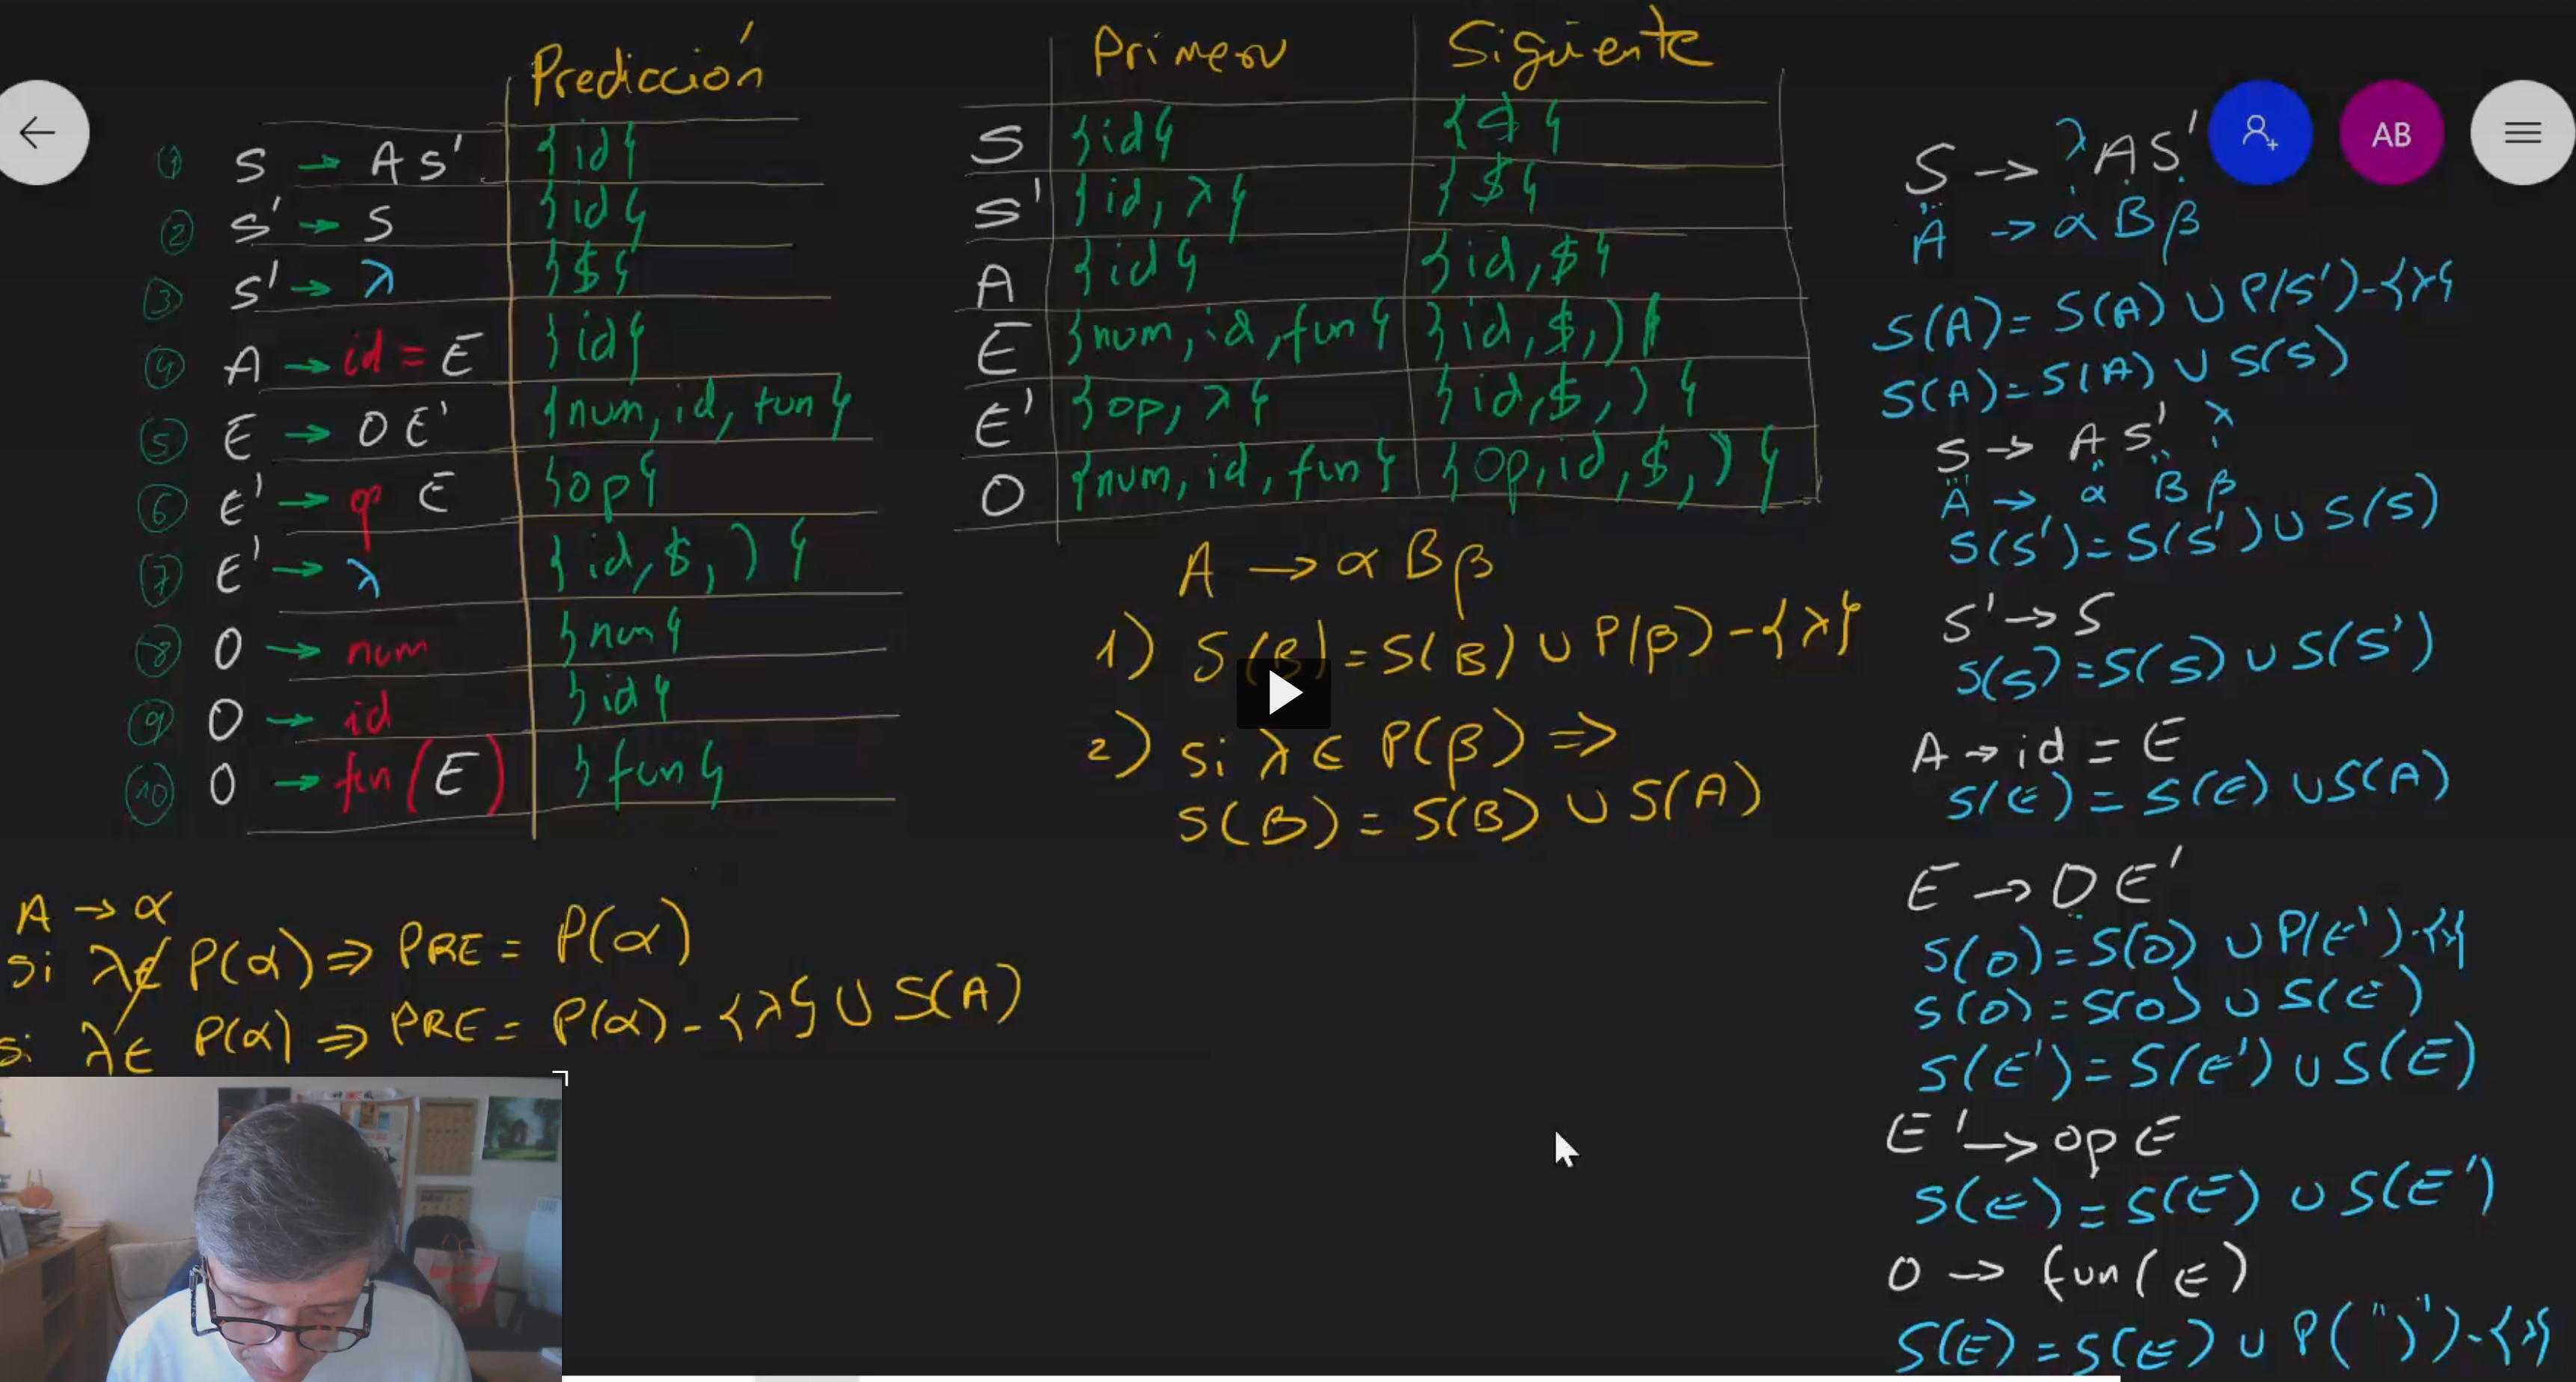 Predicción
① S → A S' {id}
② S' → S {id}
③ S' → λ {$}
④ A → id = E {id}
⑤ E → O E' {num, id, fun}
⑥ E' → op E {op}
⑦ E' → λ {id, $, )}
⑧ O → num {num}
⑨ O → id {id}
⑩ O → fun (E) {fun}
A → α
si λ ∉ P(α) ⇒ PRE = P(α)
si λ ∈ P(α) ⇒ PRE = P(α) - {λ} ∪ S(A)
Primero Siguiente
S {id} {$}
S' {id, λ} {$}
A {id} {id, $}
E {num, id, fun} {id, $, )}
E' {op, λ} {id, $, )}
O {num, id, fun} {op, id, $, )}
A → α B β
1) S(B) = S(B) ∪ P(β) - {λ}
2) si λ ∈ P(β) ⇒
S(B) = S(B) ∪ S(A)
AB
S → λ A S'
A → α B β
S(A) = S(A) ∪ P(S') - {λ}
S(A) = S(A) ∪ S(S)
S → A S' λ
A → α B β
S(S') = S(S') ∪ S(S)
S' → S
S(S) = S(S) ∪ S(S')
A → id = E
S(E) = S(E) ∪ S(A)
E → O E'
S(O) = S(O) ∪ P(E') - {λ}
S(O) = S(O) ∪ S(E)
S(E') = S(E') ∪ S(E)
E' → op E
S(E) = S(E) ∪ S(E')
O → fun (E)
S(E) = S(E) ∪ P(")") - {λ}